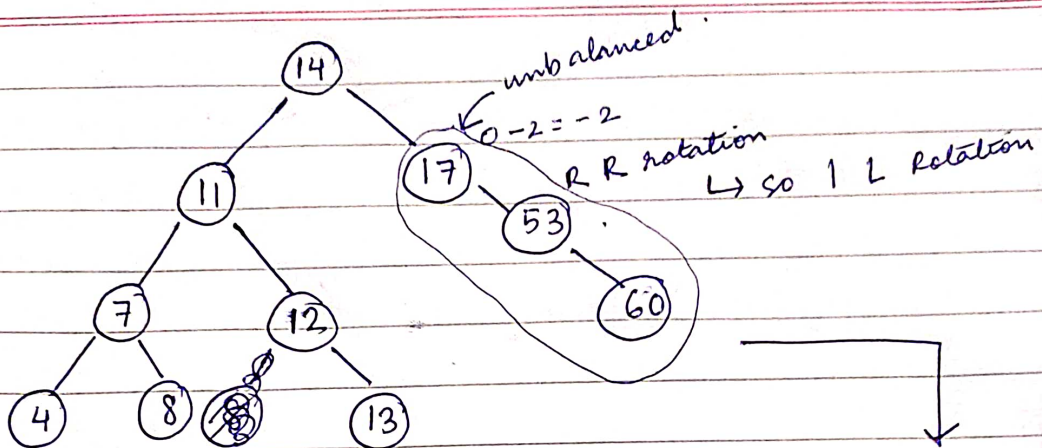 unbalanced.
14
0-2=-2
17
R R rotation
↳ so 1 L Rotation
11
53
7
12
60
4
8
13